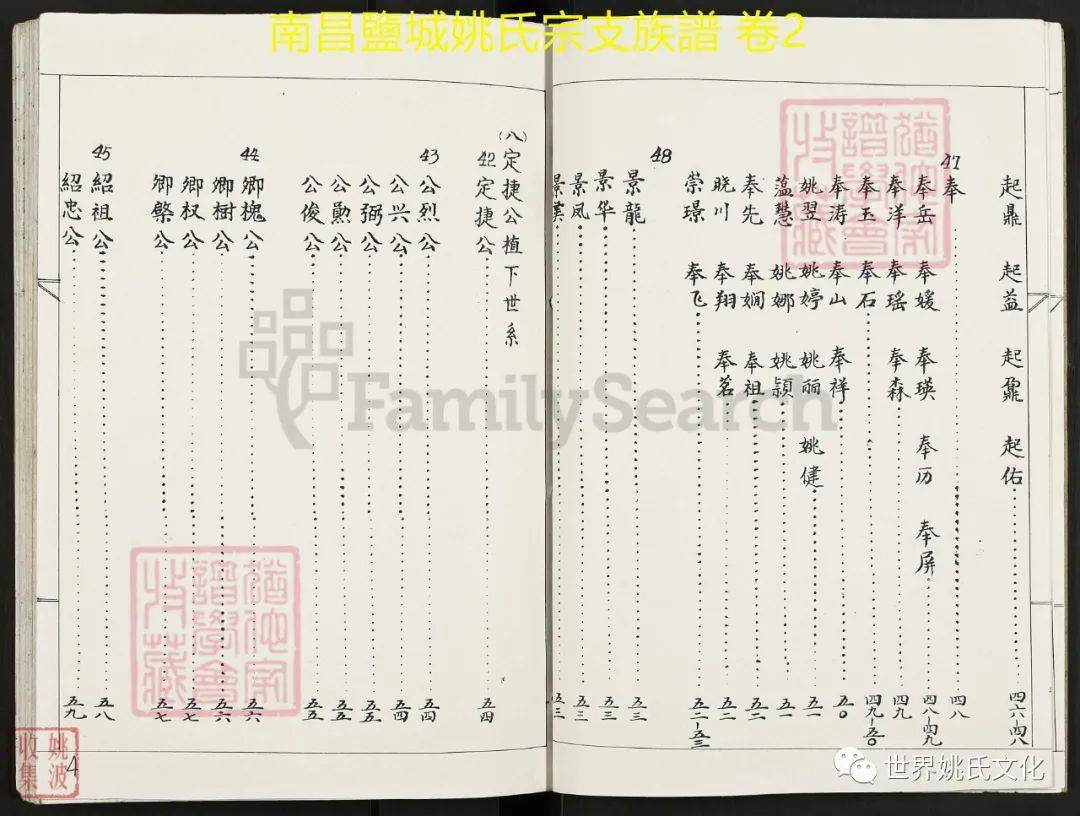 南昌鹽城姚氏宗支族譜 卷2
起鼎 起益 起鼐 起佑 四六-四八
47 奉 四八
奉岳 奉媛 奉瑛 奉历 奉屏 四八-四九
奉洋 奉瑶 奉森 四九
奉玉 奉石 四九-五〇
奉涛 奉山 奉祥 五〇
姚翌 姚婷 姚丽 姚健 五一
蕴慧 姚娜 姚颖 五一
奉先 奉娴 奉祖 五二
晓川 奉翔 奉茗 五二
崇璟 奉飞 五二-五三
48 景龍 五三
景华 五三
景凤 五三
景漢 五三
(八)定捷公植下世系
42 定捷公 五四
43 公烈公 五四
公兴公 五四
公弼公 五五
公勲公 五五
公俊公 五五
44 卿槐公 五六
卿樹公 五六
卿权公 五七
卿檠公 五七
45 紹祖公 五八
紹忠公 五九
4
FamilySearch
譜學會
收藏
譜學會
收藏
姚波
收集
世界姚氏文化